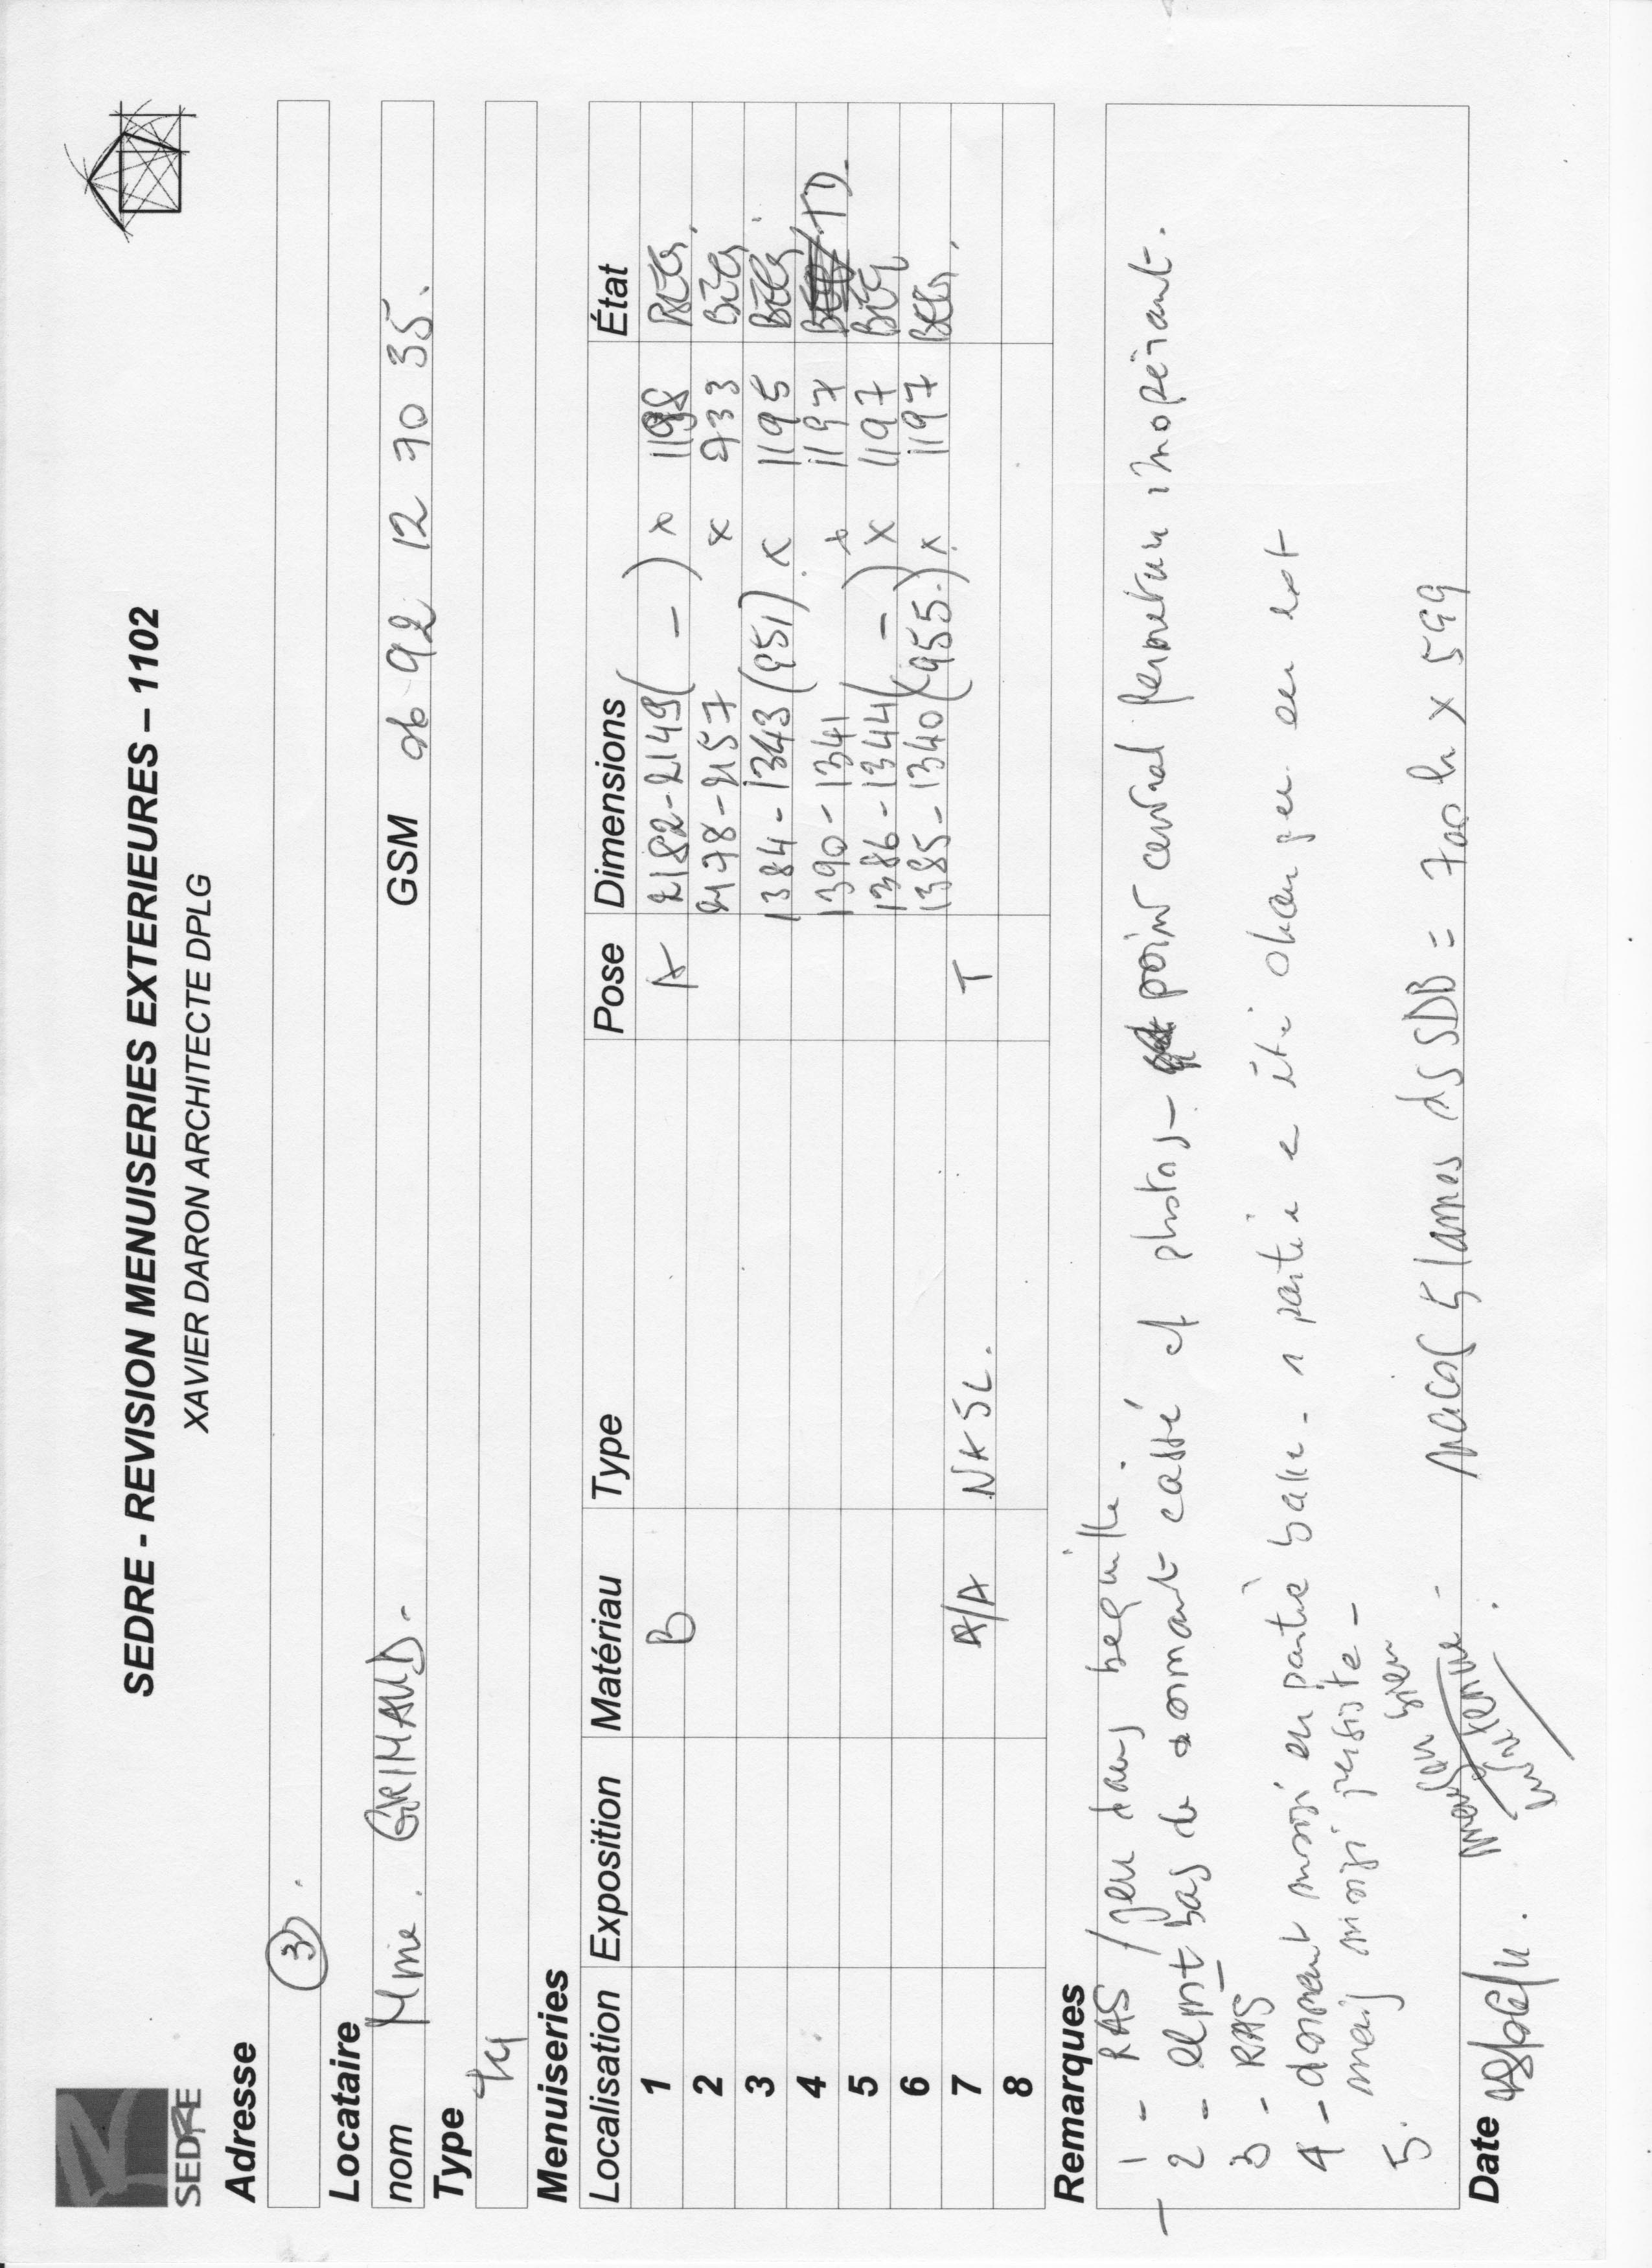 SEDRE
SEDRE - REVISION MENUISERIES EXTERIEURES – 1102
XAVIER DARON ARCHITECTE DPLG
Adresse
3
Locataire
nom Mme. GRIMAUD- GSM 06 92 12 70 35.
Type
T4
Menuiseries
Localisation Exposition Matériau Type Pose Dimensions État
1 B A 2182-2149 ( – ) x 1198
2 2178-2157 x 2733
3 1384-1343 (951) x 1195
4 1390-1341 x 1197 TD-
5 1386-1344 ( – ) x 1197
6 1385-1340 (955) x 1197
7 A/A NK 5L. T
8
Remarques
1 - RAS / jeu dans bequille.
2 - bas de dormant cassé cf photos - point central fermeture inopérant.
3 - RAS
4 - dormant moisi en partie basse - 1 partie a été changée en ext
mais moisi persiste -
5. naco 5 lames ds SDB = 700 h x 599
Date